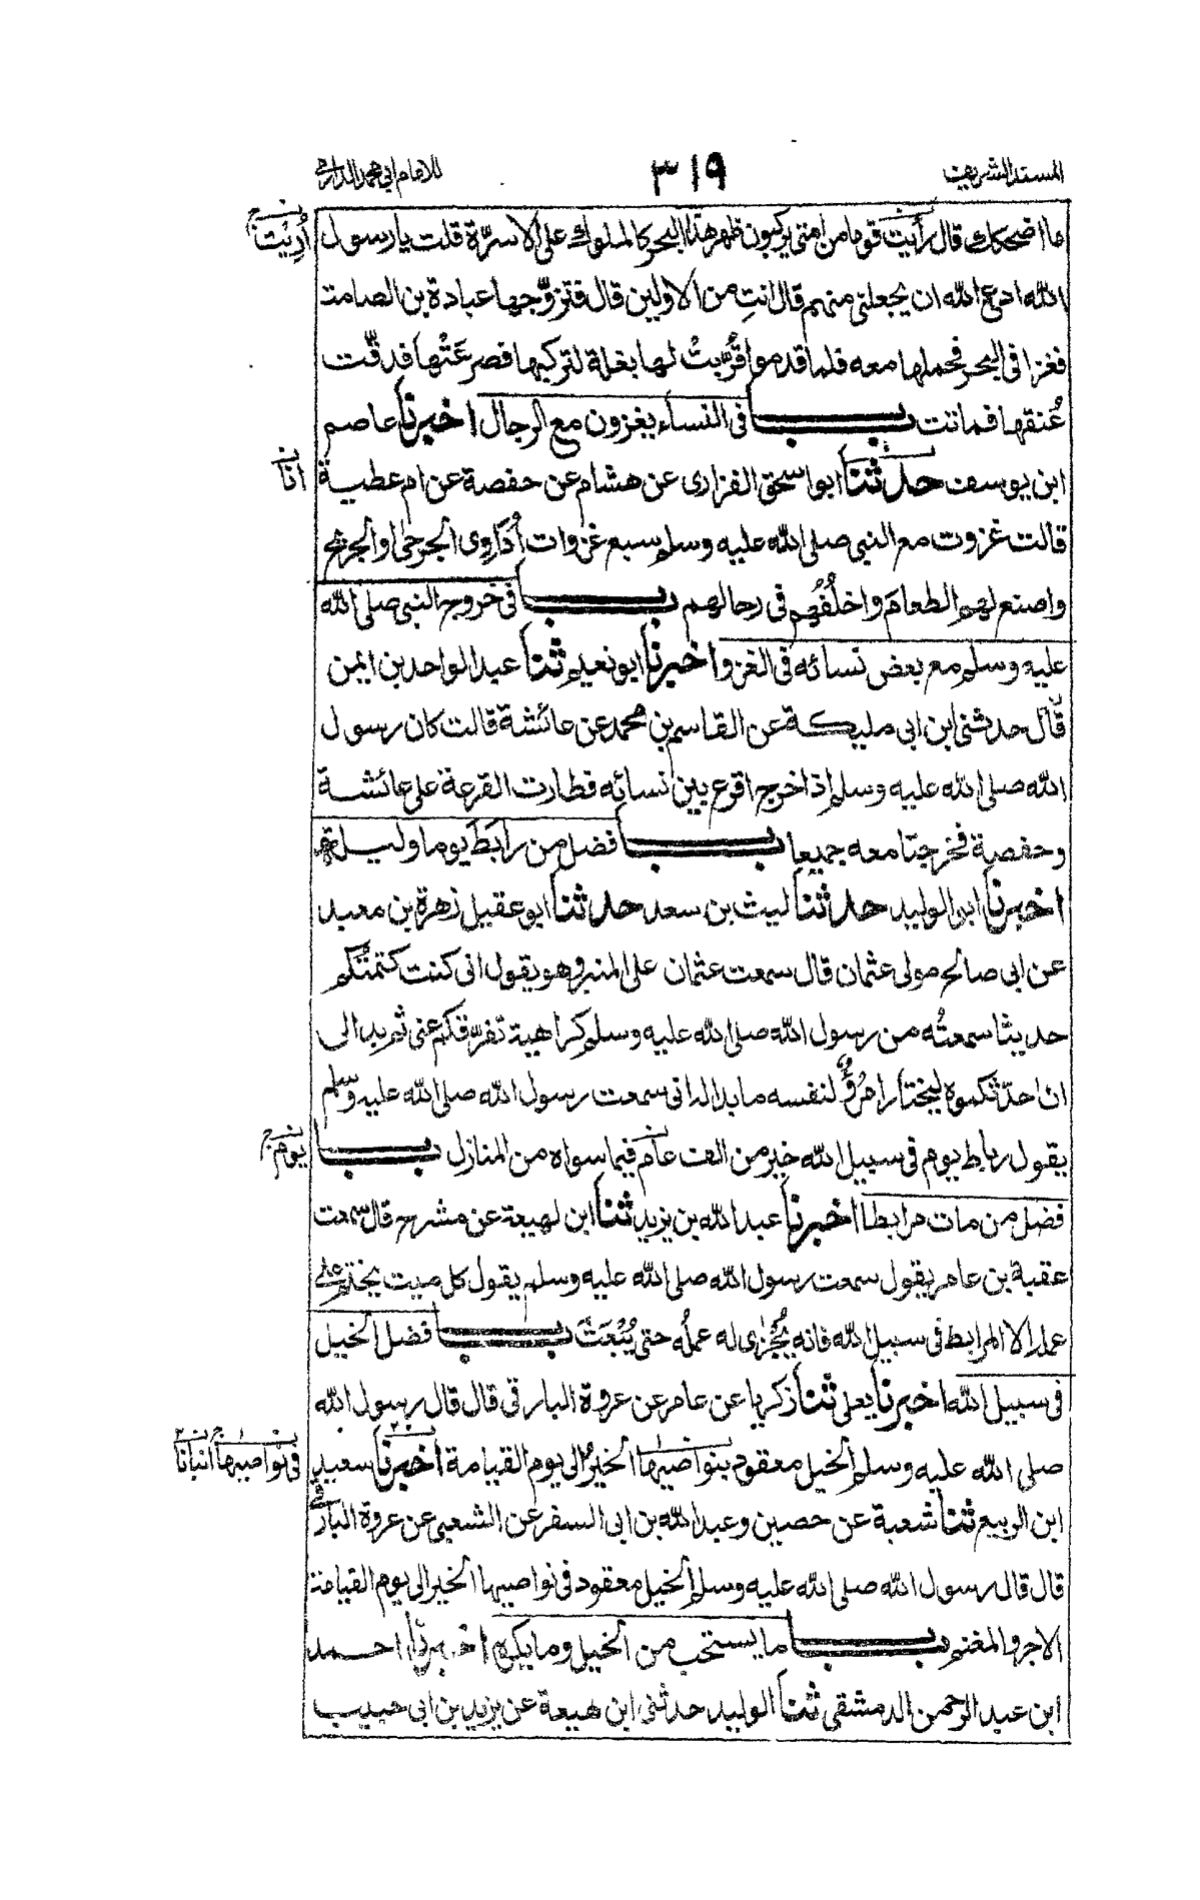 المسند الشريف ٣١٩ للامام ابي محمد الدارمي
ما اضحكك قال رأيت قوما من امتي يركبون ظهر هذا البحر كالملوك على الاسرّة قلت يا رسول
أُرِيْتُ
الله ادع الله ان يجعلني منهم قال انتِ من الاولين قال فتزوّجها عبادة بن الصامت
فغزا في البحر فحملها معه فلما قدموا قُرِّبتْ لها بغلة لتركبها فصرعَتْها فدقّت
عُنقها فماتت بــاب في النساء يغزون مع الرجال اخبرنا عاصم
ابن يوسف حدثنا ابو اسحق الفزارى عن هشام عن حفصة عن ام عطية
انا
قالت غزوت مع النبي صلى الله عليه وسلم سبع غزوات أُدَاوِى الجرحى او الجريح
واصنع لهم الطعامَ واخلُفُهم في رحالهم بــاب في خروج النبي صلى الله
عليه وسلم مع بعض نسائه في الغزو اخبرنا ابو نعيم ثنا عبد الواحد بن ايمن
قال حدثني ابن ابي مليكة عن القاسم بن محمد عن عائشة قالت كان رسول
الله صلى الله عليه وسلم اذا خرج اقرع بين نسائه فطارت القرعة على عائشة
وحفصة فخرجتا معه جميعا بــاب فضل من رابَطَ يوما وليلة
اخبرنا ابو الوليد حدثنا ليث بن سعد حدثنا ابو عقيل زهرة بن معبد
عن ابي صالح مولى عثمان قال سمعت عثمان على المنبر وهو يقول اني كنت كتمتُكم
حديثا سمعتُه من رسول الله صلى الله عليه وسلم كراهية تفرّقكم عني ثم بدا لي
ان احدّثكموه ليختار امرُؤٌ لنفسه ما بدا له اني سمعت رسول الله صلى الله عليه وسلم
يقول رباط يوم في سبيل الله خير من الف عام فيما سواه من المنازل بــاب
يوم
فضل من مات مرابطا اخبرنا عبد الله بن يزيد ثنا ابن لهيعة عن مشرح قال سمعت
عقبة بن عامر يقول سمعت رسول الله صلى الله عليه وسلم يقول كل ميت يختم على
عمله الا المرابط في سبيل الله فانه يُجْرٰى له عملُه حتى يُبْعَثَ بــاب فضل الخيل
في سبيل الله اخبرنا يعلى ثنا زكريا عن عامر عن عروة البارقي قال قال رسول الله
صلى الله عليه وسلم الخيل معقود بنواصيها الخيرُ الى يوم القيامة اخبرنا سعيد
في نواصيها انبانا
ابن الربيع ثنا شعبة عن حصين وعبد الله بن ابي السفر عن الشعبي عن عروة البارقي
قال قال رسول الله صلى الله عليه وسلم الخيل معقود في نواصيها الخير الى يوم القيامة
الاجر والمغنم بــاب ما يستحب من الخيل وما يكره اخبرنا احمد
ابن عبد الرحمن الدمشقي ثنا الوليد حدثني ابن لهيعة عن يزيد بن ابي حبيب